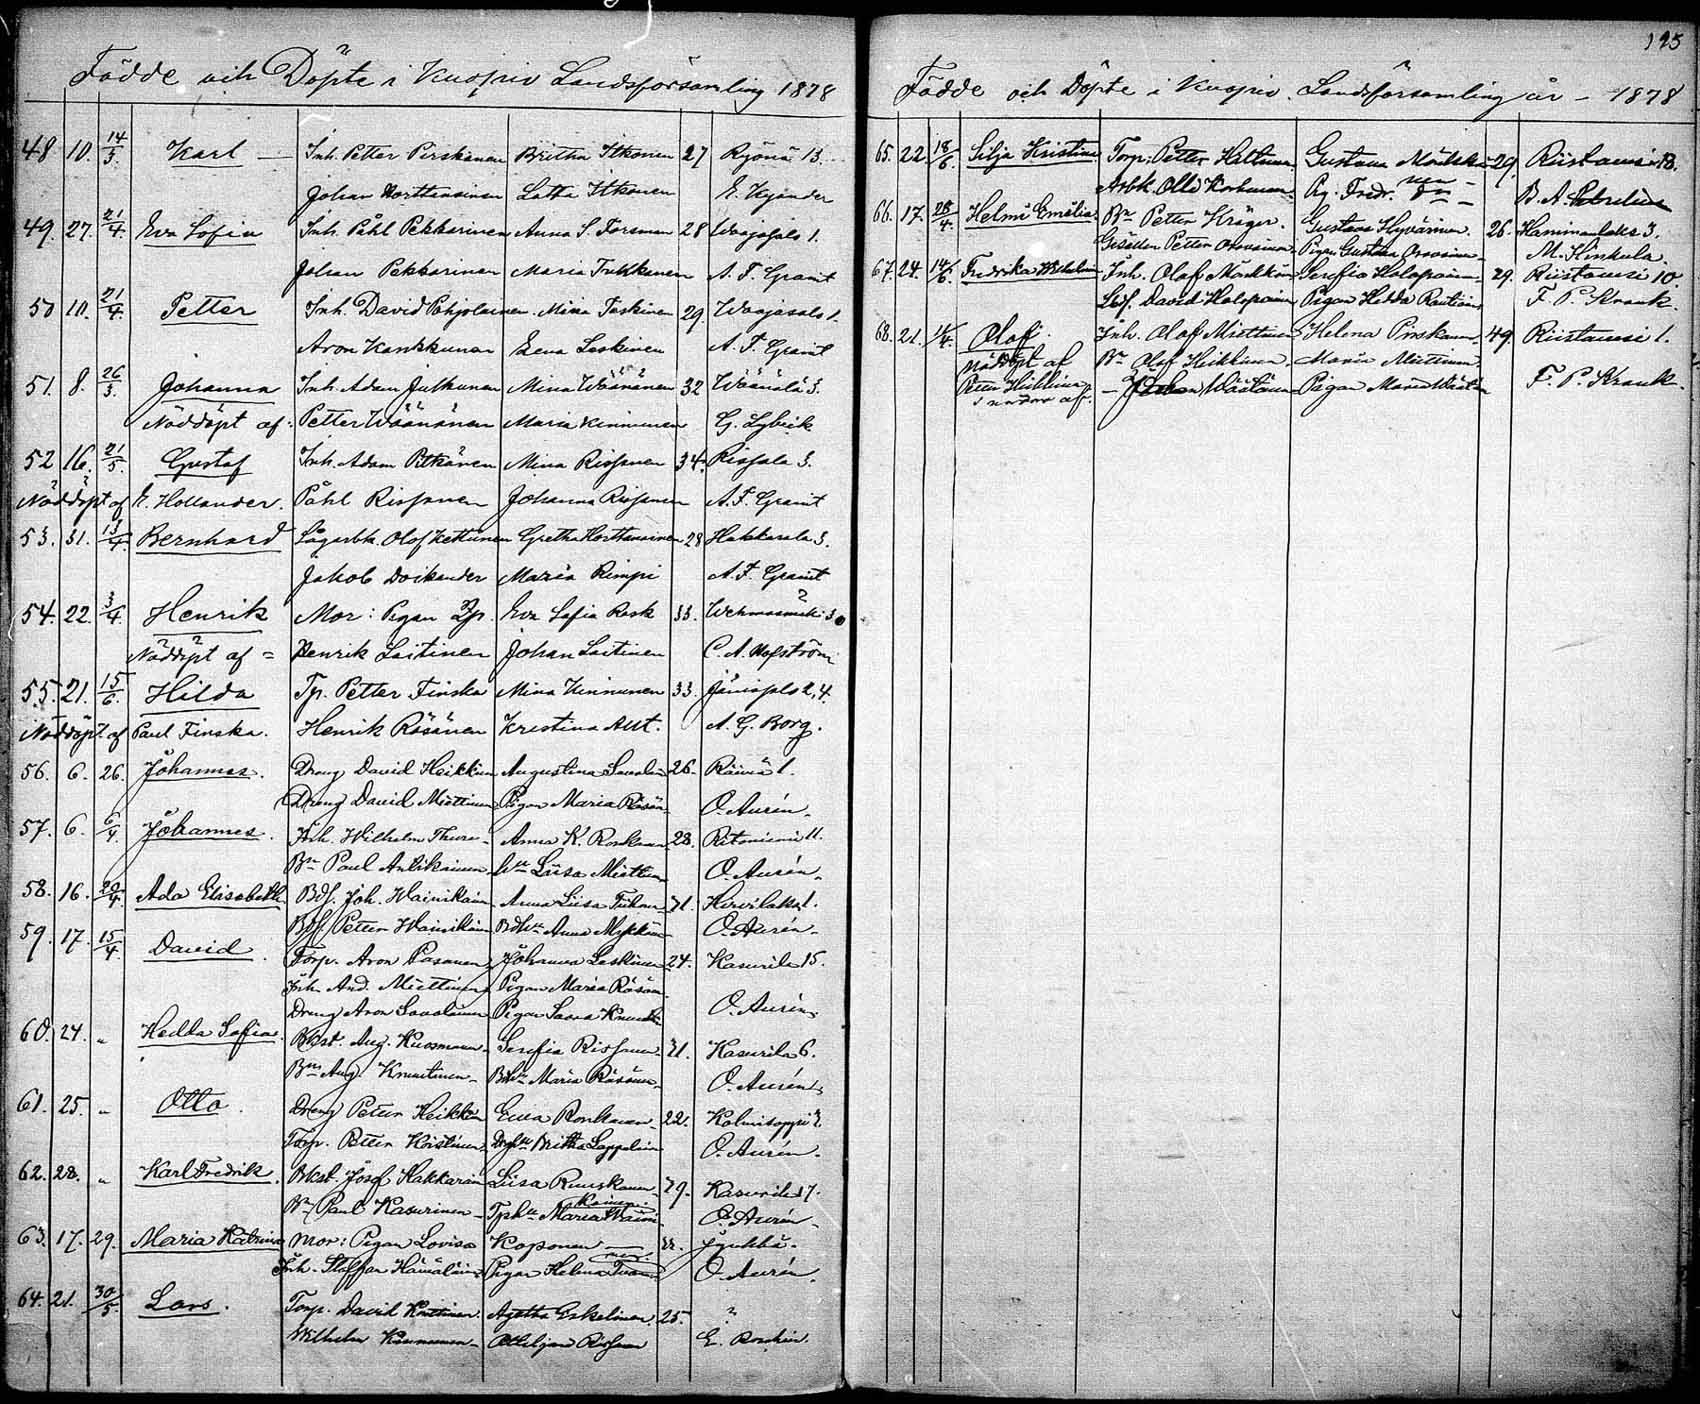 Födde och Döpte i Kuopio Landsförsamling 1878
48 10. 14/3. Karl — Inh. Petter Pirskanen Britha Itkonen 27 Ryönä 13.
Johan Horttanainen Lotta Itkonen E. Kyander
49. 27. 21/4. Eva Sofia Inh. Påhl Pekkarinen Anna S. Forsman 28 Waajasalo 1.
Johan Pekkarinen Maria Trukkanen A. F. Granit
50 10. 21/4. Petter Inh. David Pohjolainen Mina Taskinen 29. Waajasalo 1.
Aron Kankkunen Leena Laskinen A. F. Granit
51. 8. 26/3. Johanna Inh. Adam Jutkunen Mina Wäänänen 32 Wäänälä 3.
Nöddöpt af: Petter Wäänänen Maria Kinnunen G. Lybeck
52 16. 21/5. Gustaf Inh. Adam Pitkänen Mina Rissanen 34. Rissala 3.
Nöddöpt af E. Hollander. Påhl Rissanen Johanna Rissanen A. F. Granit
53. 31. 13/4. Bernhard Lägarbk. Olof Kettunen Gretha Horttanainen 28 Hakkarala 3.
Jakob Doikander Maria Rimpi A. F. Granit
54. 22. 3/4. Henrik Mor: Pigan Eva Sofia Rask 33. Wehmasmäki 3
Nöddöpt af = Henrik Laitinen Johan Laitinen C. A. Hofström
55. 21. 15/6. Hilda Tp. Petter Finska Mina Kinnunen 33. Jänissalo 2,4.
Nöddöpt af Paul Finska. Henrik Räsänen Kristina Alit. A. G. Borg.
56. 6. 26. Johannes. Dreng David Heikkin Augustina Savolain 26. Räimä 1.
Dreng David Miettinen Pigan Maria Räsän O. Aurén.
57. 6. 6/4. Johannes. Inh. Wilhelm Thure Anna K. Ronkanen 28. Ritoniemi 11.
Bn Paul Antikainen Liisa Miettinen O. Aurén.
58. 16. 29/4. Ada Elisabeth Bdf. Joh. Wainikain Anna Liisa Tiihon 31. Hirvilaks 1.
Bdf Petter Wainikain Anna Mykkän O. Aurén.
59. 17. 15/4. David. Torp. Aron Pasanen Johanna Leskinen 24. Kasurila 15.
Inh. And. Miettinen Pigan Maria Räsän
Dreng Aron Savolainen Pigan Saara O. Aurén.
60. 24. „ Hedda Sofia. Bkst. Aug. Kuosmanen Serefia Rissanen 31. Kasurila 6.
Bns Aug. Knuutinen Maria Räsänen O. Aurén.
61. 25. „ Otto. Dreng Petter Heikkin Eeva Ronkanen 22. Kolmisoppi 2.
Torp. Petter Koistinen Britta Lappalain O. Aurén.
62. 28. „ Karl Fredrik. Bkst. Josef Hakkarain Liisa Ruuskanen 39. Kasurila 17.
Bn Paul Kasurinen Maria Waini-
kainen O. Aurén.
63. 17. 29. Maria Katrina Mor: Pigan Lovisa Koponen 22. Jynkkä.
Inh. Staffan Hämäläin Pigan Helena O. Aurén.
64. 21. 30/5. Lars. Torp. David Agatha Eskelinen 25. ?
Wilhelm Ottiljana Rissanen
195
Födde och Döpte i Kuopio Landsförsamling år – 1878
65. 22. 18/6. Silja Kristina Torp. Petter Hiltunen Gustava 29. Riistavesi 13.
Arbk. Olli Korhonen Pig. Fredr.
66. 17. 28/4. Helmi Emelia. Bn Petter Kröger. Gustava Hyvärinen. 26. Haminanlaks 3.
Gesällen Petter Pigan Gustava M. Hinkula.
67. 24. 14/6. Fredrika Wilhelmin Inh. Olof Mönkkön Serefia Holopain 29. Riistavesi 10.
David Holopainen Pigan Hedda Rautiain F. P. Krank.
68. 21. 14/4. Olof. Inh. Olof Miettinen Helena Pirskanen 49. Riistavesi 1.
Nöddöpt af Bn Olof Heikkinen Maria Miettinen
Petter Heikkinen Wästinen Pigan Maria F. P. Krank.